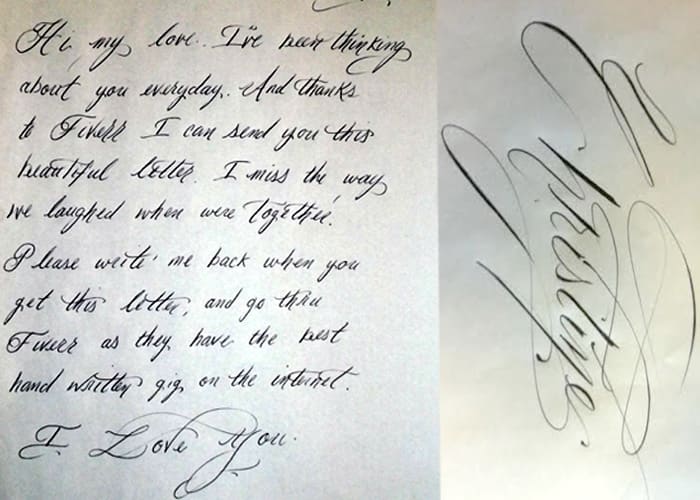 Hi, my love. I've been thinking
about you everyday. And thanks
to Fiverr I can send you this
beautiful letter. I miss the way
we laughed when were together.
Please write me back when you
get this letter, and go thru
Fiverr as they have the best
hand written gig on the internet.
I Love You.
Christine.